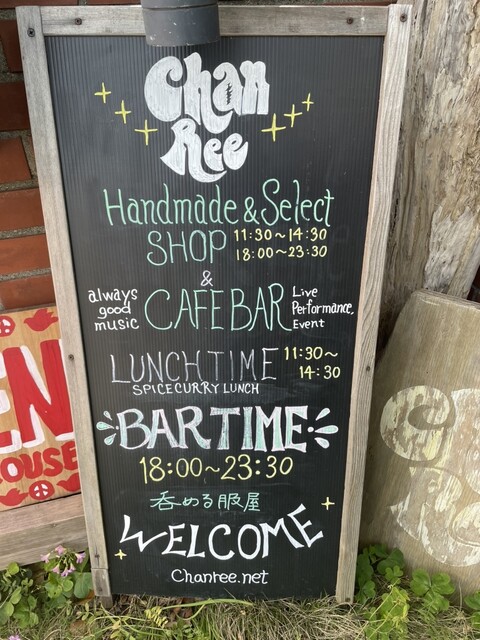 Chan
Ree
Handmade & Select
SHOP 11:30~14:30
18:00~23:30
&
always good music
CAFE BAR
Live Performance, Event
LUNCH TIME 11:30~14:30
SPICE CURRY LUNCH
BAR TIME
18:00~23:30
呑める服屋
WELCOME
Chanree.net
EN
OUSE